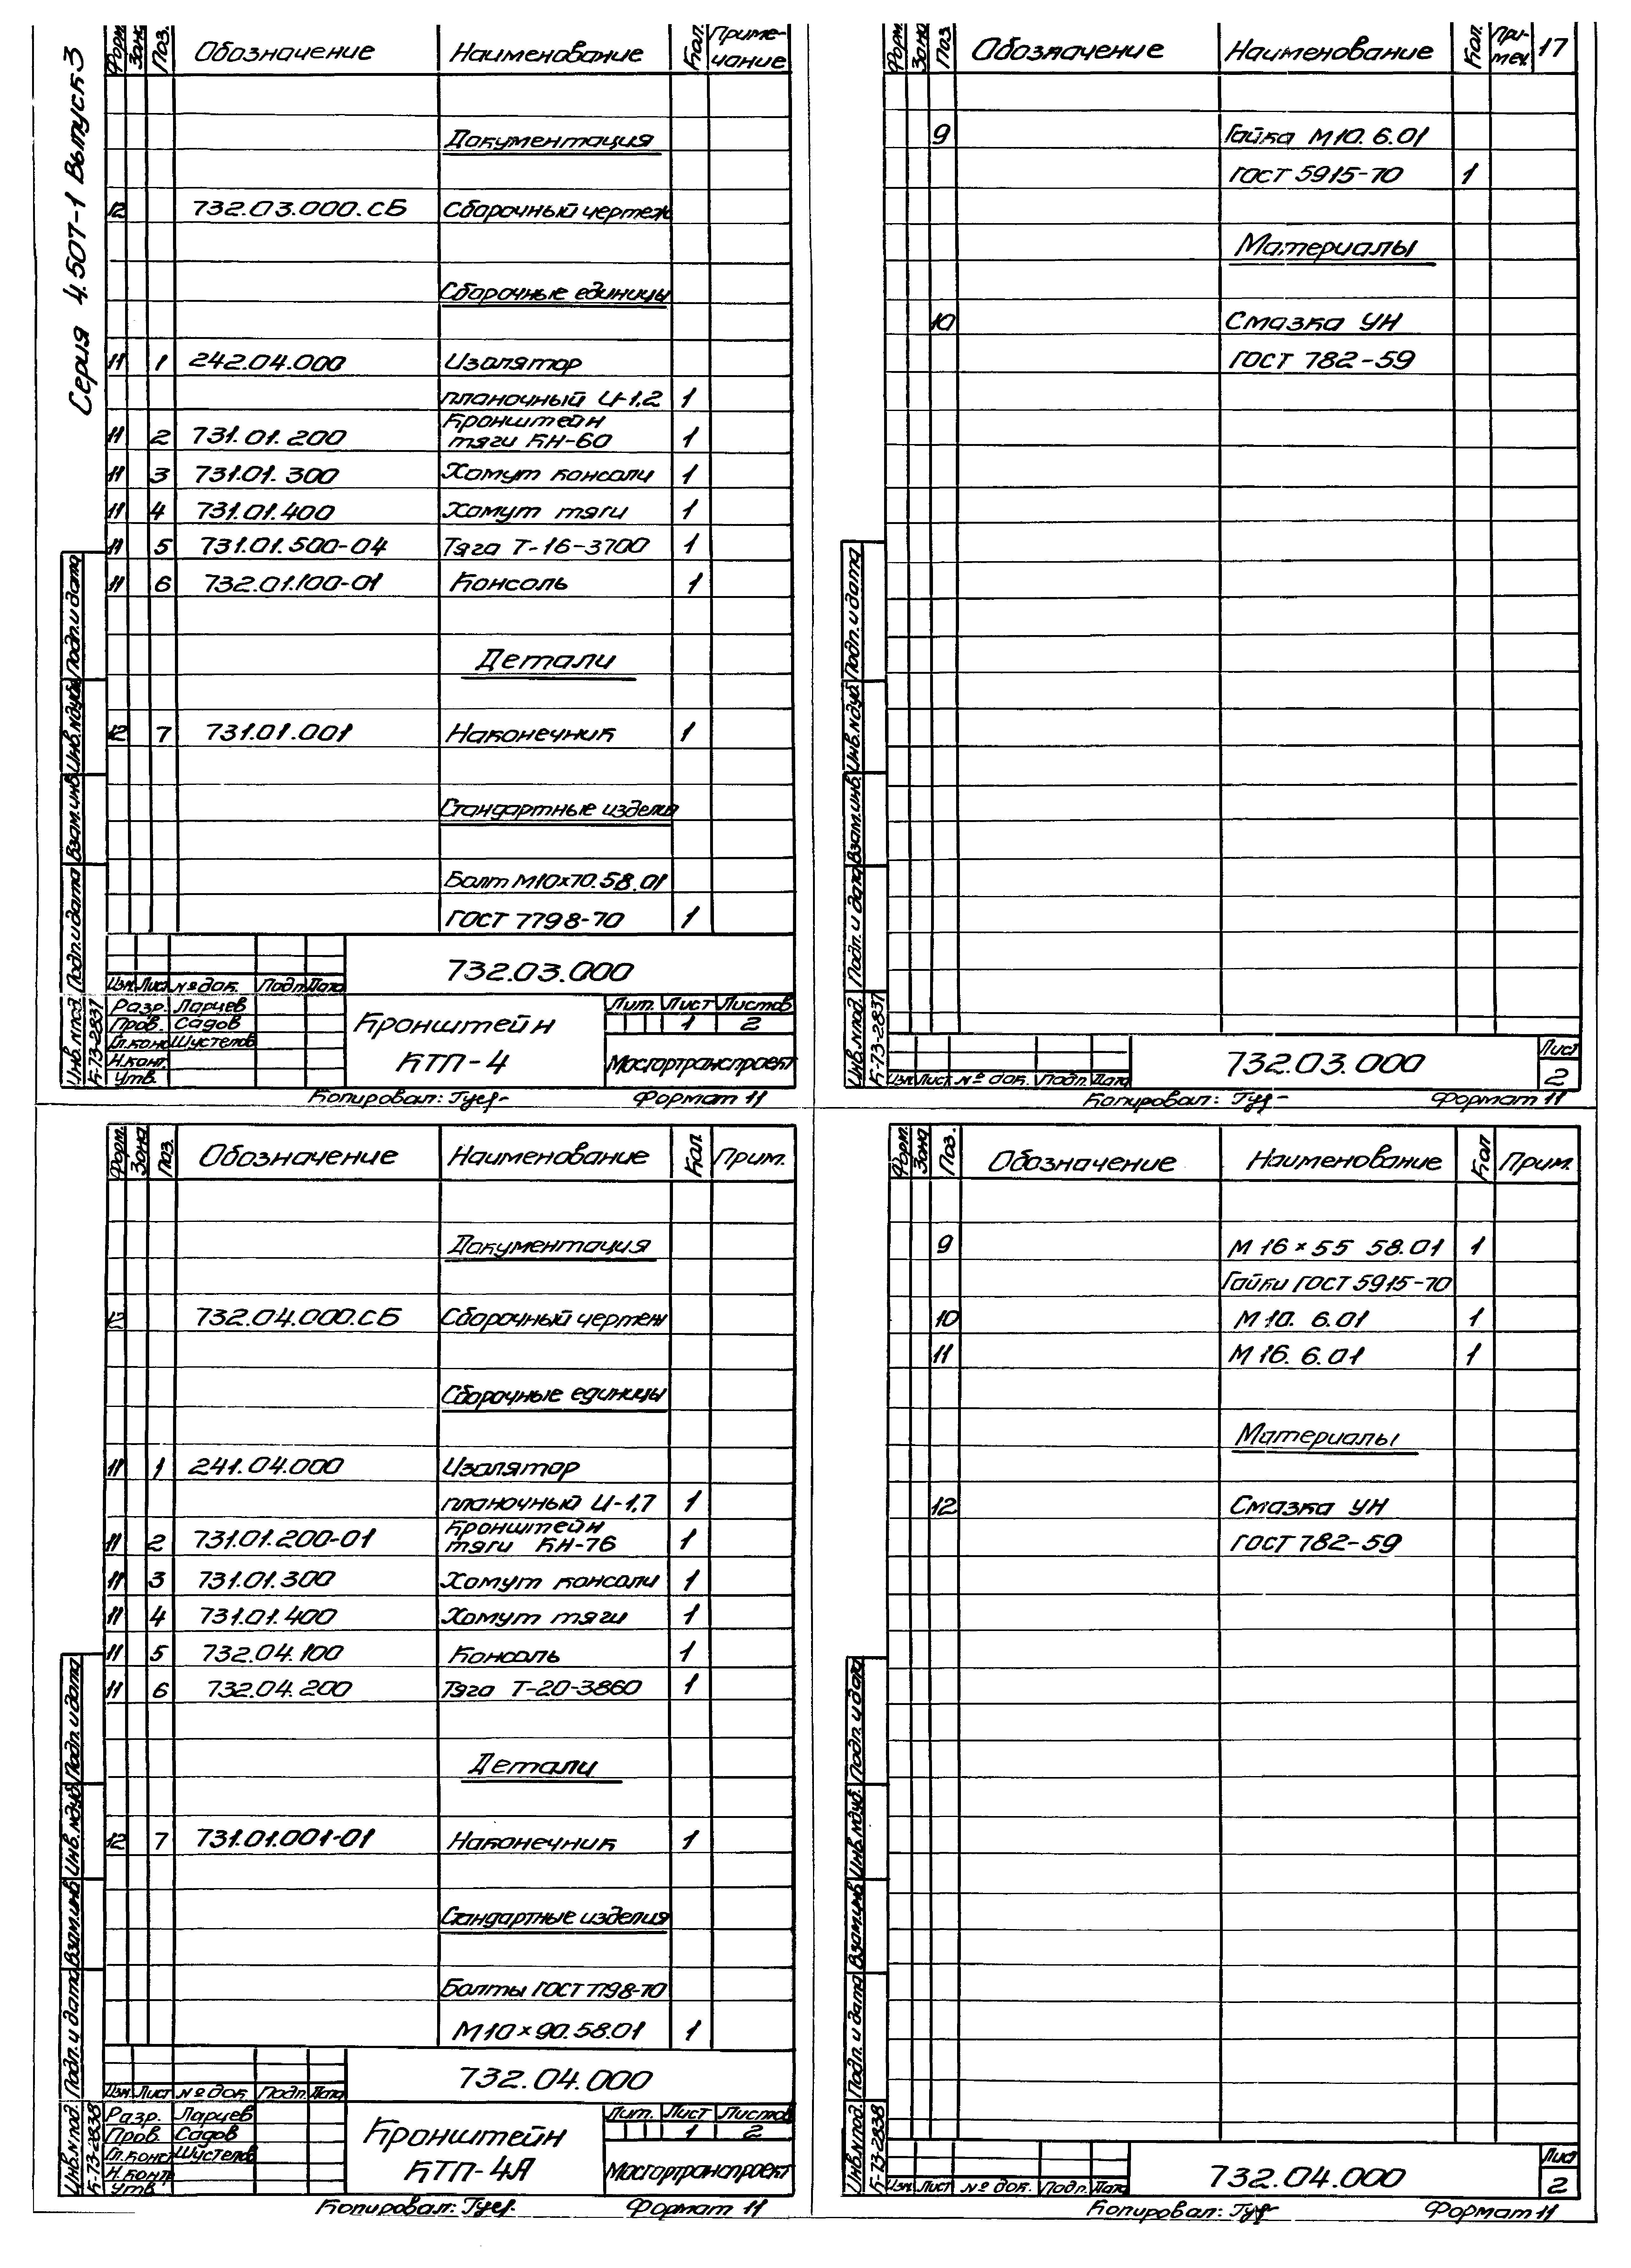 Серия 4.507-1 Выпуск 3
Форм. Зона Поз. Обозначение Наименование Кол. Приме-
чание
Документация
12 732.03.000.СБ Сборочный чертеж
Сборочные единицы
11 1 242.04.000 Изолятор
планочный И-1,2 1
Кронштейн
11 2 731.01.200 тяги КН-60 1
11 3 731.01.300 Хомут консоли 1
11 4 731.01.400 Хомут тяги 1
11 5 731.01.500-04 Тяга Т-16-3700 1
11 6 732.01.100-01 Консоль 1
Детали
12 7 731.01.001 Наконечник 1
Стандартные изделия
Болт М10×70.58.01
ГОСТ 7798-70 1
732.03.000
Изм. Лист № док. Подп. Дата
Разр. Ларчев
Пров. Садов
Гл.конс. Шустелов
Н.конт.
Утв.
Кронштейн
КТП-4
Лит. Лист Листов
1 2
Мосгортранспроект
Инв.№под. Подп.и дата Взам.инв. Инв.№дубл. Подп.и дата
К-73-2837
Копировал: Формат 11
Форм. Зона Поз. Обозначение Наименование Кол. При-
меч. 17
9 Гайка М10.6.01
ГОСТ 5915-70 1
Материалы
10 Смазка УН
ГОСТ 782-59
Инв.№под. Подп.и дата Взам.инв. Инв.№дуб. Подп.и дата
К-73-2837
Изм. Лист № док. Подп. Дата
732.03.000
Лист
2
Копировал: Формат 11
Форм. Зона Поз. Обозначение Наименование Кол. Прим.
Документация
12 732.04.000.СБ Сборочный чертеж
Сборочные единицы
11 1 241.04.000 Изолятор
планочный И-1,7 1
Кронштейн
11 2 731.01.200-01 тяги КН-76 1
11 3 731.01.300 Хомут консоли 1
11 4 731.01.400 Хомут тяги 1
11 5 732.04.100 Консоль 1
11 6 732.04.200 Тяга Т-20-3860 1
Детали
12 7 731.01.001-01 Наконечник 1
Стандартные изделия
Болты ГОСТ 7798-70
М10×90.58.01 1
732.04.000
Изм. Лист № док. Подп. Дата
Разр. Ларчев
Пров. Садов
Гл.конс. Шустелов
Н.конт.
Утв.
Кронштейн
КТП-4А
Лит. Лист Листов
1 2
Мосгортранспроект
Инв.№под. Подп. и дата Взам.инв. Инв.№дуб. Подп.и дата
К-73-2838
Копировал: Формат 11
Форм. Зона Поз. Обозначение Наименование Кол. Прим.
9 М 16×55 58.01 1
Гайки ГОСТ 5915-70
10 М 10. 6.01 1
11 М 16. 6.01 1
Материалы
12 Смазка УН
ГОСТ 782-59
Инв.№под. Подп. и дата Взам.инв. Инв.№дуб. Подп. и дата
К-73-2838
Изм. Лист № док. Подп. Дата
732.04.000
Лист
2
Копировал: Формат 11